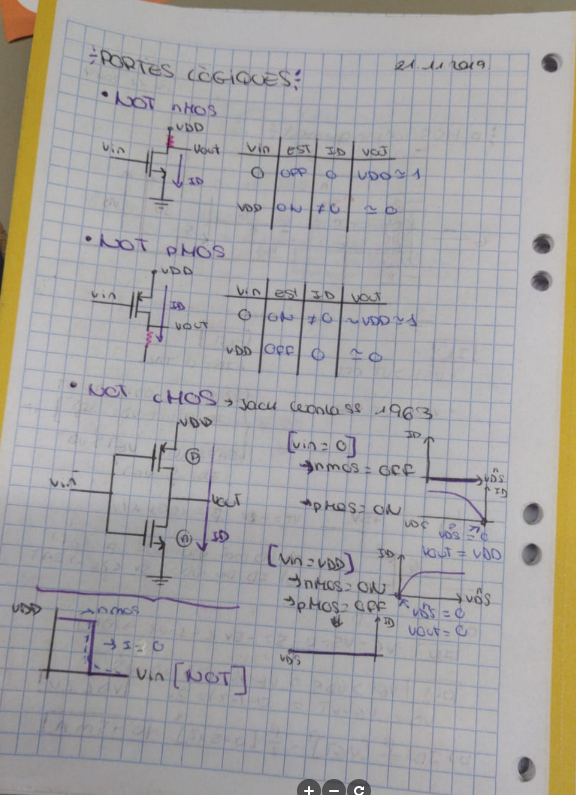 ÷PORTES LÒGIQUES÷
21.11.2019
• NOT nMOS
VDD
Vin
Vout
ID
Vin EST ID VOUT
0 OFF 0 VDD ≃ 1
VDD ON ≠0 ≃ 0
• NOT pMOS
VDD
Vin
ID
VOUT
Vin EST ID VOUT
0 ON ≠0 ~VDD≃1
VDD OFF 0 ≃ 0
• NOT CMOS → Jack 1963
VDD
P
Vin
VOUT
n
ID
[Vin = 0]
→ nmos = OFF
ID
VDS
→ pMOS = ON
ID
VDS
VDS = 0
VOUT = VDD
[Vin = VDD]
→ nMOS = ON
→ pMOS = OFF
ID
VDS
VDS = 0
VOUT = 0
ID
VDS
VDD
nmos
→ I = 0
Vin [NOT]